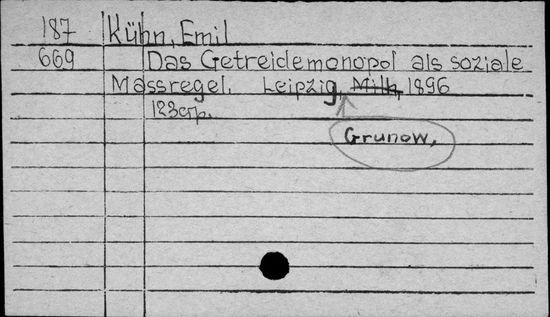 187 Kühn, Emil
669 Das Getreidemonopol als soziale
Massregel. Leipzig, Milk, 1896
123 стр.
Grunow,